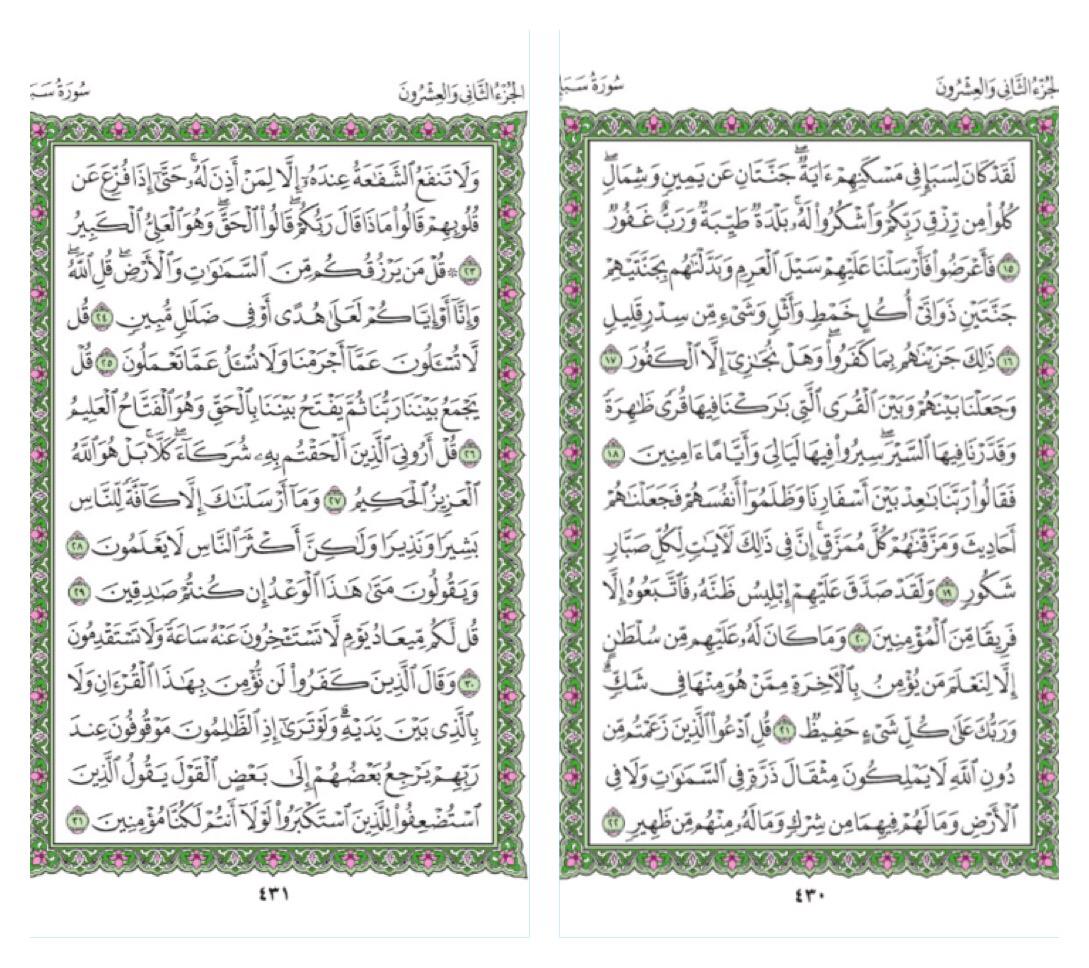 الجزء الثاني والعشرون
سورة سبإ
لَقَدْ كَانَ لِسَبَإٍ فِي مَسْكَنِهِمْ ءَايَةٌ ۖ جَنَّتَانِ عَن يَمِينٍ وَشِمَالٍ ۖ
كُلُوا۟ مِن رِّزْقِ رَبِّكُمْ وَٱشْكُرُوا۟ لَهُۥ ۚ بَلْدَةٌ طَيِّبَةٌ وَرَبٌّ غَفُورٌ
١٥ فَأَعْرَضُوا۟ فَأَرْسَلْنَا عَلَيْهِمْ سَيْلَ ٱلْعَرِمِ وَبَدَّلْنَٰهُم بِجَنَّتَيْهِمْ
جَنَّتَيْنِ ذَوَاتَىْ أُكُلٍ خَمْطٍ وَأَثْلٍ وَشَىْءٍ مِّن سِدْرٍ قَلِيلٍ
١٦ ذَٰلِكَ جَزَيْنَٰهُم بِمَا كَفَرُوا۟ ۖ وَهَلْ نُجَٰزِىٓ إِلَّا ٱلْكَفُورَ ١٧
وَجَعَلْنَا بَيْنَهُمْ وَبَيْنَ ٱلْقُرَى ٱلَّتِى بَٰرَكْنَا فِيهَا قُرًى ظَٰهِرَةً
وَقَدَّرْنَا فِيهَا ٱلسَّيْرَ ۖ سِيرُوا۟ فِيهَا لَيَالِىَ وَأَيَّامًا ءَامِنِينَ ١٨
فَقَالُوا۟ رَبَّنَا بَٰعِدْ بَيْنَ أَسْفَارِنَا وَظَلَمُوٓا۟ أَنفُسَهُمْ فَجَعَلْنَٰهُمْ
أَحَادِيثَ وَمَزَّقْنَٰهُمْ كُلَّ مُمَزَّقٍ ۚ إِنَّ فِى ذَٰلِكَ لَءَايَٰتٍ لِّكُلِّ صَبَّارٍ
شَكُورٍ ١٩ وَلَقَدْ صَدَّقَ عَلَيْهِمْ إِبْلِيسُ ظَنَّهُۥ فَٱتَّبَعُوهُ إِلَّا
فَرِيقًا مِّنَ ٱلْمُؤْمِنِينَ ٢٠ وَمَا كَانَ لَهُۥ عَلَيْهِم مِّن سُلْطَٰنٍ
إِلَّا لِنَعْلَمَ مَن يُؤْمِنُ بِٱلْءَاخِرَةِ مِمَّنْ هُوَ مِنْهَا فِى شَكٍّ ۗ
وَرَبُّكَ عَلَىٰ كُلِّ شَىْءٍ حَفِيظٌ ٢١ قُلِ ٱدْعُوا۟ ٱلَّذِينَ زَعَمْتُم مِّن
دُونِ ٱللَّهِ لَا يَمْلِكُونَ مِثْقَالَ ذَرَّةٍ فِى ٱلسَّمَٰوَٰتِ وَلَا فِى
ٱلْأَرْضِ وَمَا لَهُمْ فِيهِمَا مِن شِرْكٍ وَمَا لَهُۥ مِنْهُم مِّن ظَهِيرٍ ٢٢
٤٣٠
الجزء الثاني والعشرون
سورة سبإ
وَلَا تَنفَعُ ٱلشَّفَٰعَةُ عِندَهُۥٓ إِلَّا لِمَنْ أَذِنَ لَهُۥ ۚ حَتَّىٰٓ إِذَا فُزِّعَ عَن
قُلُوبِهِمْ قَالُوا۟ مَاذَا قَالَ رَبُّكُمْ ۖ قَالُوا۟ ٱلْحَقَّ ۖ وَهُوَ ٱلْعَلِىُّ ٱلْكَبِيرُ
٢٣ ۞ قُلْ مَن يَرْزُقُكُم مِّنَ ٱلسَّمَٰوَٰتِ وَٱلْأَرْضِ ۖ قُلِ ٱللَّهُ ۖ
وَإِنَّآ أَوْ إِيَّاكُمْ لَعَلَىٰ هُدًى أَوْ فِى ضَلَٰلٍ مُّبِينٍ ٢٤ قُل
لَّا تُسْـَٔلُونَ عَمَّآ أَجْرَمْنَا وَلَا نُسْـَٔلُ عَمَّا تَعْمَلُونَ ٢٥ قُلْ
يَجْمَعُ بَيْنَنَا رَبُّنَا ثُمَّ يَفْتَحُ بَيْنَنَا بِٱلْحَقِّ وَهُوَ ٱلْفَتَّاحُ ٱلْعَلِيمُ
٢٦ قُلْ أَرُونِىَ ٱلَّذِينَ أَلْحَقْتُم بِهِۦ شُرَكَآءَ ۖ كَلَّا ۚ بَلْ هُوَ ٱللَّهُ
ٱلْعَزِيزُ ٱلْحَكِيمُ ٢٧ وَمَآ أَرْسَلْنَٰكَ إِلَّا كَآفَّةً لِّلنَّاسِ
بَشِيرًا وَنَذِيرًا وَلَٰكِنَّ أَكْثَرَ ٱلنَّاسِ لَا يَعْلَمُونَ ٢٨
وَيَقُولُونَ مَتَىٰ هَٰذَا ٱلْوَعْدُ إِن كُنتُمْ صَٰدِقِينَ ٢٩
قُل لَّكُم مِّيعَادُ يَوْمٍ لَّا تَسْتَـْٔخِرُونَ عَنْهُ سَاعَةً وَلَا تَسْتَقْدِمُونَ
٣٠ وَقَالَ ٱلَّذِينَ كَفَرُوا۟ لَن نُّؤْمِنَ بِهَٰذَا ٱلْقُرْءَانِ وَلَا
بِٱلَّذِى بَيْنَ يَدَيْهِ ۗ وَلَوْ تَرَىٰٓ إِذِ ٱلظَّٰلِمُونَ مَوْقُوفُونَ عِندَ
رَبِّهِمْ يَرْجِعُ بَعْضُهُمْ إِلَىٰ بَعْضٍ ٱلْقَوْلَ يَقُولُ ٱلَّذِينَ
ٱسْتُضْعِفُوا۟ لِلَّذِينَ ٱسْتَكْبَرُوا۟ لَوْلَآ أَنتُمْ لَكُنَّا مُؤْمِنِينَ ٣١
٤٣١